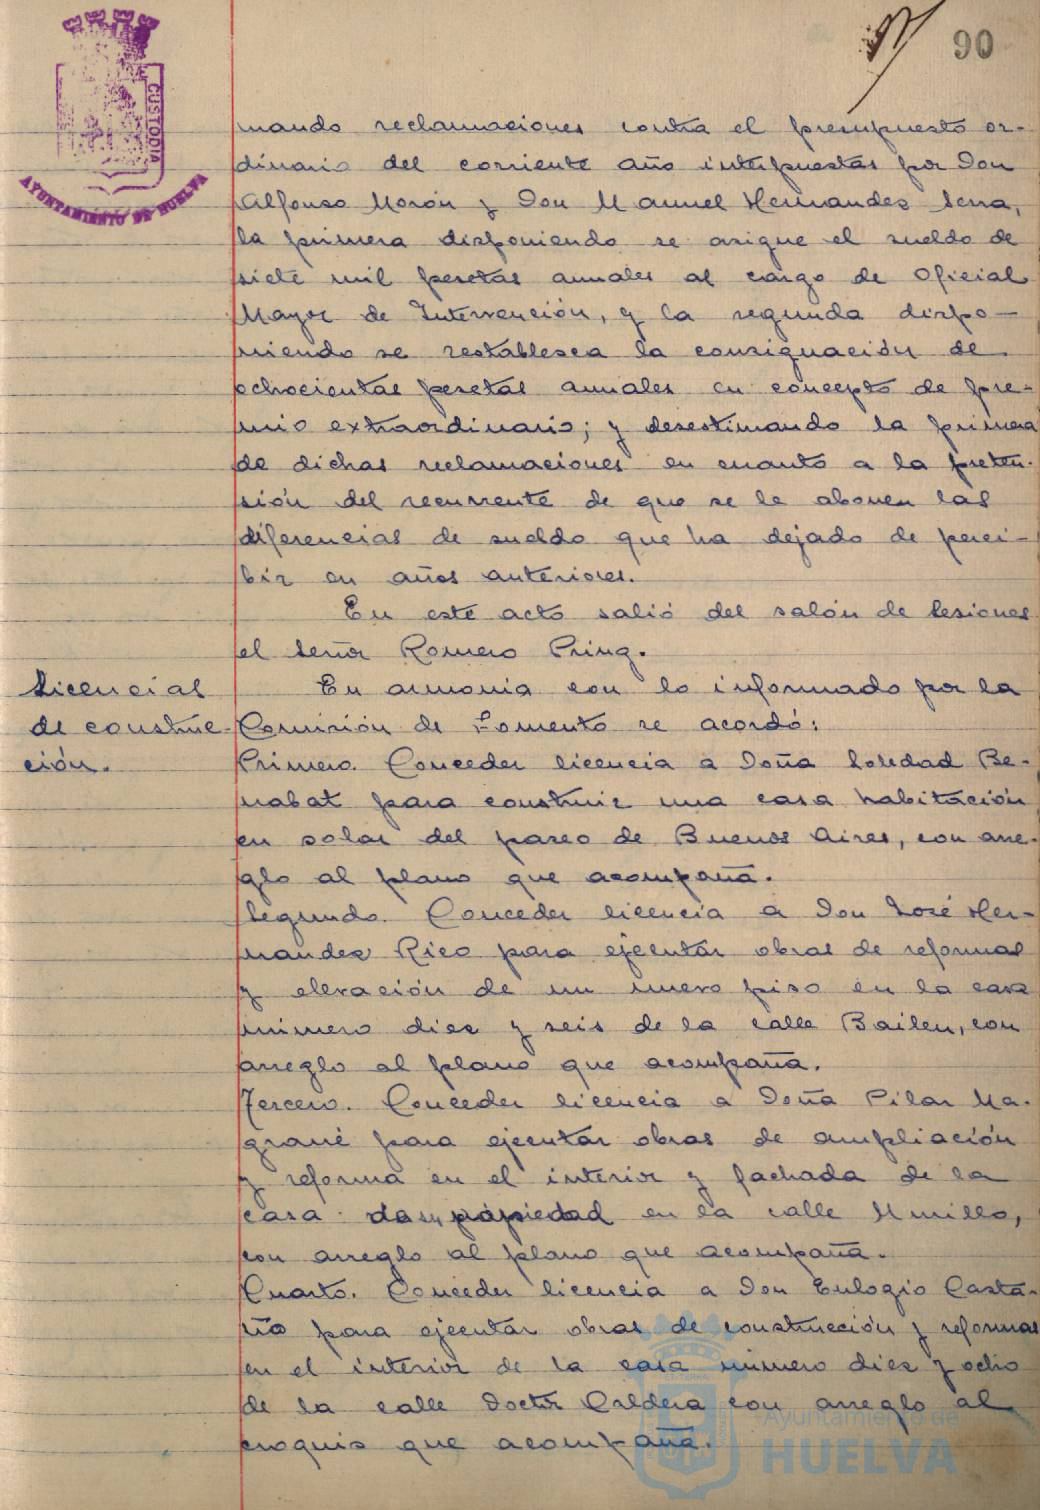 90
CUSTODIA
AYUNTAMIENTO DE HUELVA
mando reclamaciones contra el presupuesto or-
dinario del corriente año interpuestas por Don
Alfonso Morón y Don Manuel Hernandes Serra,
la primera disponiendo se asigne el sueldo de
siete mil pesetas anuales al cargo de Oficial
Mayor de Intervención, y la segunda dispo-
niendo se restablesca la consignación de
ochocientas pesetas anuales en concepto de pre-
mio extraordinario; y desestimando la primera
de dichas reclamaciones en cuanto a la preten-
sión del recurrente de que se le abonen las
diferencias de sueldo que ha dejado de perci-
bir en años anteriores.
En este acto salió del salón de Sesiones
el Señor Romero Pring.
Licencias
de construc-
ción.
En armonia con lo informado por la
Comisión de Fomento se acordó:
Primero. Conceder licencia a Doña Soledad Be-
nabat para construir una casa habitación
en solar del paseo de Buenos Aires, con arre-
glo al plano que acompaña.
Segundo. Conceder licencia a Don José Her-
nandez Rico para ejecutar obras de reformas
y elevación de un nuevo piso en la casa
número diez y seis de la calle Bailen, con
arreglo al plano que acompaña.
Tercero. Conceder licencia a Doña Pilar Ma-
grané para ejecutar obras de ampliación
y reforma en el interior y fachada de la
casa propiedad en la calle Murillo,
con arreglo al plano que acompaña.
Cuarto. Conceder licencia a Don Eulogio Casta-
ño para ejecutar obras de construcción y reformas
en el interior de la casa número diez y ocho
de la calle Doctor Caldera con arreglo al
croquis que acompaña.
Ayuntamiento de
HUELVA